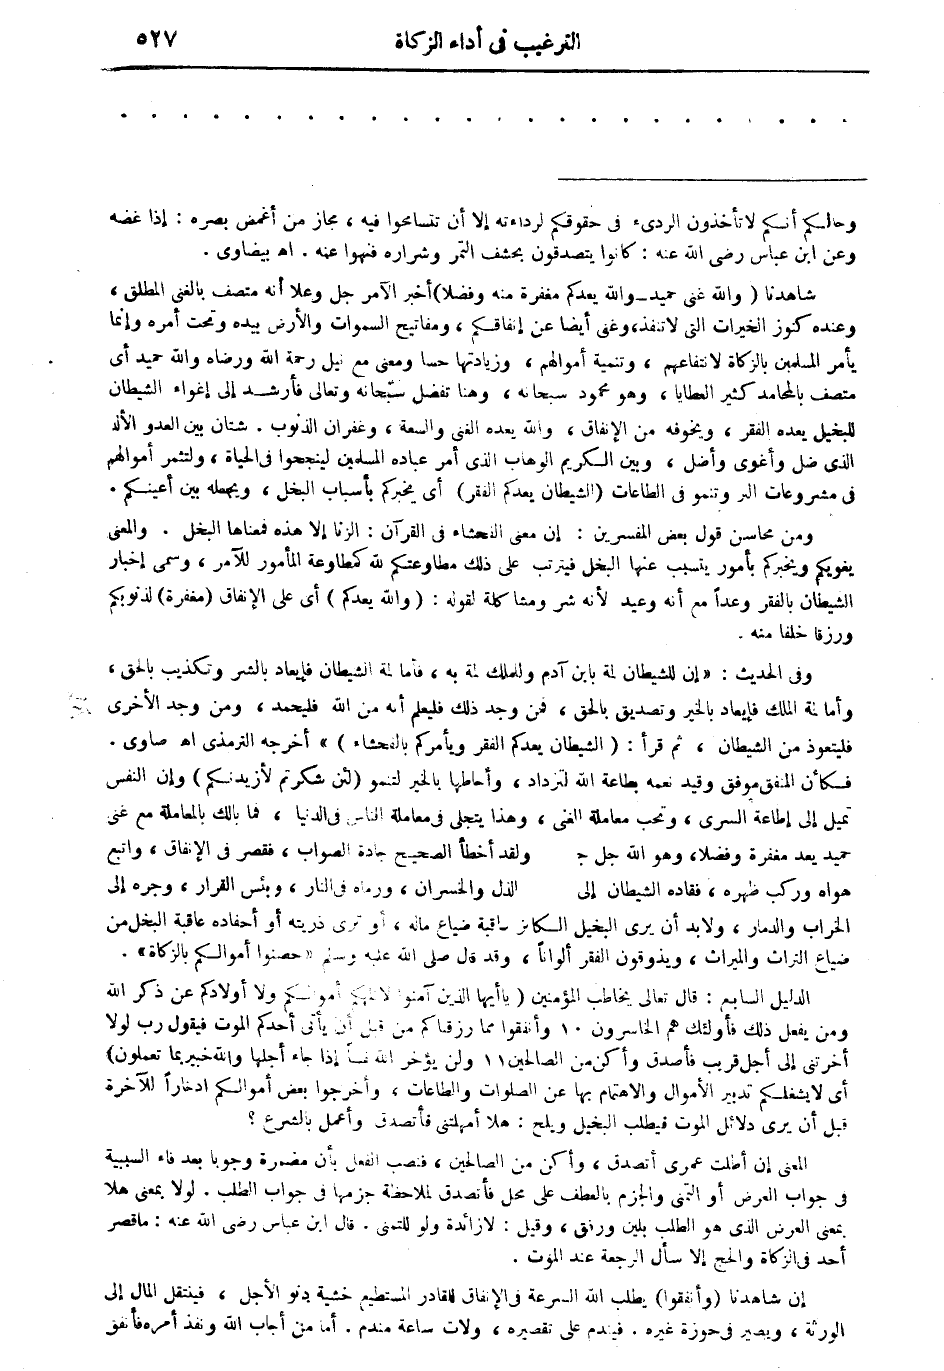 الترغيب فى أداء الزكاة ٥٢٧
وحالكم أنكم لا تأخذون الردىء فى حقوقكم لرداءته إلا أن تتسامحوا فيه ، مجاز من أغمض بصره : إذا غضه
وعن ابن عباس رضى الله عنه : كانوا يتصدقون بحشف التمر وشراره فنهوا عنه . اه بيضاوى .
شاهدنا ( والله غنى حميد ــ والله يعدكم مغفرة منه وفضلا) أخبر الآمر جل وعلا أنه متصف بالغنى المطلق ،
وعنده كنوز الخيرات التى لاتنفذ، وغنى أيضا عن إنفاقكم ، ومفاتيح السموات والأرض بيده وتحت أمره وإنما
يأمر المسلمين بالزكاة لانتفاعهم ، وتنمية أموالهم ، وزيادتها حسا ومعنى مع نيل رحمة الله ورضاه والله حميد أى
متصف بالمحامد كثير العطايا ، وهو محمود سبحانه ، وهنا تفضل سبحانه وتعالى فأرشد إلى إغواء الشيطان
للبخيل يعده الفقر ، ويخوفه من الإنفاق ، والله يعده الغنى والسعة ، وغفران الذنوب . شتان بين العدو الألد
الذى ضل وأغوى وأضل ، وبين الكريم الوهاب الذى أمر عباده المسلمين لينجحوا فى الحياة ، ولتثمر أموالهم
فى مشروعات البر وتنمو فى الطاعات (الشيطان يعدكم الفقر) أى يخبركم بأسباب البخل ، ويجعله بين أعينكم .
ومن محاسن قول بعض المفسرين : إن معنى الفحشاء فى القرآن : الزنا إلا هذه فمعناها البخل . والمعنى
يغويكم ويخبركم بأمور يتسبب عنها البخل فيترتب على ذلك مطاوعتكم لله كمطاوعة المأمور للآمر ، وسمى إخبار
الشيطان بالفقر وعداً مع أنه وعيد لأنه شر ومشاكلة لقوله : ( والله يعدكم ) أى على الإنفاق (مغفرة) لذنوبكم
ورزقا خلفا منه .
وفى الحديث : «إن للشيطان لمة بابن آدم وللملك لمة به ، فأما لمة الشيطان فإيعاد بالشر وتكذيب بالحق ،
وأما لمة الملك فإيعاد بالخير وتصديق بالحق ، فمن وجد ذلك فليعلم أنه من الله فليحمد ، ومن وجد الأخرى
فليتعوذ من الشيطان ، ثم قرأ : ( الشيطان يعدكم الفقر ويأمركم بالفحشاء ) » أخرجه الترمذى اه صاوى .
فكأن المنفق موفق وقيد نعمه بطاعة الله لتزداد ، وأحاطها بالخير لتنمو (لئن شكرتم لأزيدنكم) وإن النفس
تميل إلى إطاعة السرى ، وتحب معاملة الغنى ، وهذا يتجلى فى معاملة الناس فى الدنيا ، فما بالك بالمعاملة مع غنى
حميد يعد مغفرة وفضلا، وهو الله جل ولقد أخطأ الصحيح جادة الصواب ، فقصر فى الإنفاق ، واتبع
هواه وركب ظهره ، فقاده الشيطان إلى الذل والخسران ، ورماه فى النار ، وبئس القرار ، وجره إلى
الخراب والدمار ، ولابد أن يرى البخيل الكانز عاقبة ضياع ماله ، أو ترى ذريته أو أحفاده عاقبة البخل من
ضياع التراث والميراث ، ويذوقون الفقر ألواناً ، وقد قال صلى الله عليه وسلم «حصنوا أموالكم بالزكاة» .
الدليل السابع : قال تعالى يخاطب المؤمنين ( ياأيها الذين آمنوا لا تلهكم أموالكم ولا أولادكم عن ذكر الله
ومن يفعل ذلك فأولئك هم الخاسرون ١٠ وأنفقوا مما رزقناكم من قبل أن يأتى أحدكم الموت فيقول رب لولا
أخرتنى إلى أجل قريب فأصدق وأكن من الصالحين ١١ ولن يؤخر الله نفساً إذا جاء أجلها والله خبير بما تعملون)
أى لايشغلكم تدبير الأموال والاهتمام بها عن الصلوات والطاعات ، وأخرجوا بعض أموالكم ادخاراً للآخرة
قبل أن يرى دلائل الموت فيطلب البخيل ويلح : هلا أمهلتنى فأتصدق وأعمل بالشرع ؟
المعنى إن أطلت عمرى أتصدق ، وأكن من الصالحين ، فنصب الفعل بأن مضمرة وجوبا بعد فاء السببية
فى جواب العرض أو التمنى والجزم بالعطف على محل فأتصدق لملاحظة جزمها فى جواب الطلب . لولا بمعنى هلا
بمعنى العرض الذى هو الطلب بلين ورفق ، وقيل : لازائدة ولو للتمنى . قال ابن عباس رضى الله عنه : ماقصر
أحد فى الزكاة والحج إلا سأل الرجعة عند الموت .
إن شاهدنا (وأنفقوا) يطلب الله السرعة فى الإنفاق للقادر المستطيع خشية دنو الأجل ، فينتقل المال إلى
الورثة ، ويصير فى حوزة غيره . فيندم على تقصيره ، ولات ساعة مندم . أما من أجاب الله ونفذ أمره فأنفق